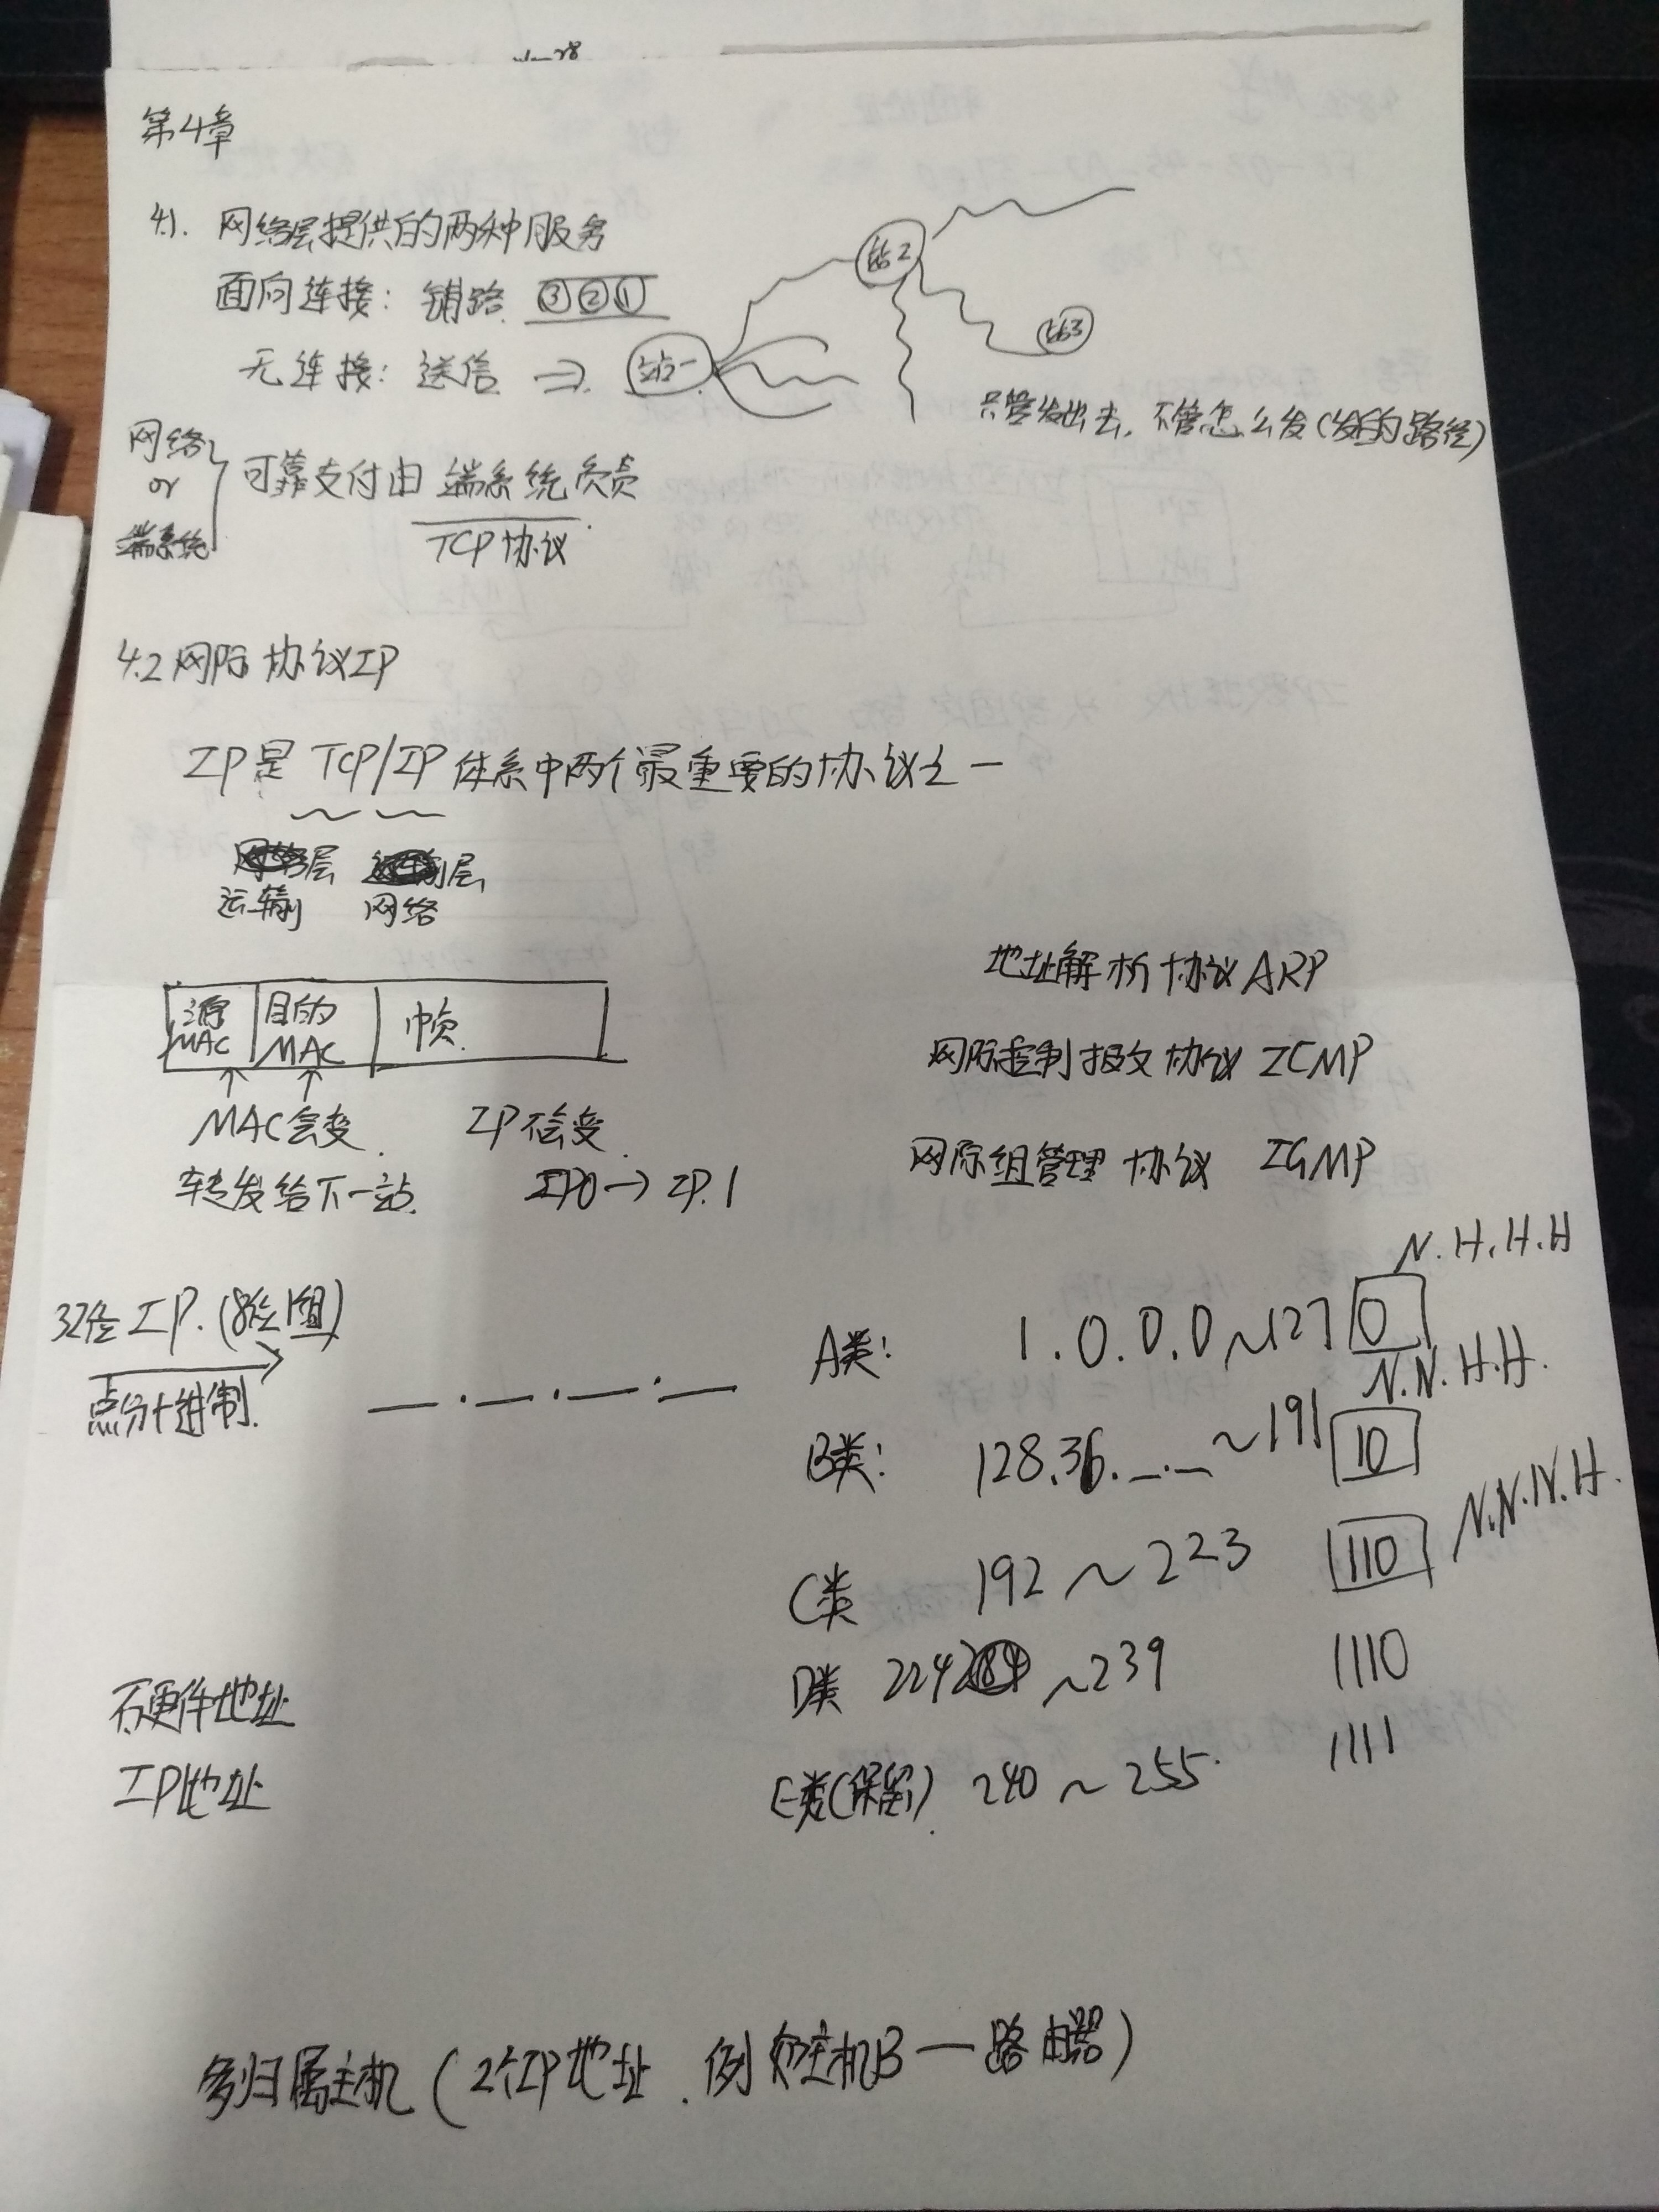 第4章
4.1. 网络层提供的两种服务
面向连接: 铺路 ③②①
无连接: 送信 ⇒ 站一 站2 站3
只管发出去, 不管怎么发(发的路径)
网络 or 端系统 } 可靠支付由 端系统负责
TCP协议
4.2 网际协议IP
IP是 TCP/IP 体系中两个最重要的协议之一
层 层
运输 网络
源MAC 目的MAC 帧
MAC会变. IP不会变.
转发给下一站. IP0→IP.1
地址解析协议 ARP
网际控制报文协议 ICMP
网际组管理协议 IGMP
32位IP.(8位1组)
点分十进制. _._._._
N.H.H.H
A类: 1.0.0.0~127 0
N.N.H.H.
B类: 128.36._._ ~191 10
N.N.N.H.
C类 192~223 110
D类 224 ~239 1110
E类(保留) 240~255. 1111
硬件地址
IP地址
多归属主机(2个IP地址. 例 主机B—路由器)